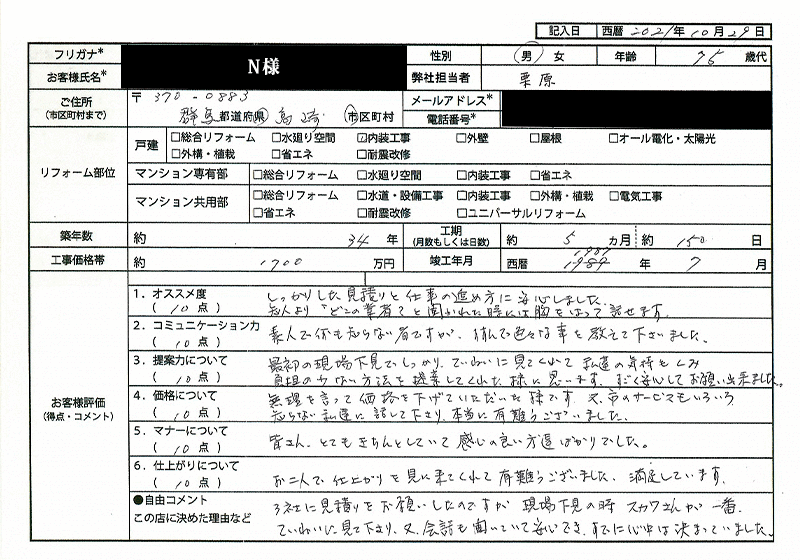 記入日 西暦 2021年10月29日
フリガナ* N様 性別 男 女 年齢 75 歳代
お客様氏名* 弊社担当者 栗原
ご住所 (市区町村まで) 〒370-0883 メールアドレス*
群馬 都道府県 高崎 市区町村 電話番号*
リフォーム部位 戸建 □総合リフォーム □水廻り空間 ☑内装工事 □外壁 □屋根 □オール電化・太陽光
□外構・植栽 □省エネ □耐震改修
マンション専有部 □総合リフォーム □水廻り空間 □内装工事 □省エネ
マンション共用部 □総合リフォーム □水道・設備工事 □内装工事 □外構・植栽 □電気工事
□省エネ □耐震改修 □ユニバーサルリフォーム
築年数 約 34 年 工期 (月数もしくは日数) 約 5 カ月 約 150 日
工事価格帯 約 1700 万円 竣工年月 西暦 1987 年 7 月
お客様評価 (得点・コメント)
1．オススメ度 しっかりした見積りと仕事の進め方に安心しました。
(10点) 知人より「どこの業者？」と聞かれた時には胸をはって話せます。
2．コミュニケーション力 素人で何も知らない者ですが、
(10点) 色々な事を教えて下さいました。
3．提案力について 最初の現場下見でしっかり、ていねいに見てくれて私達の気持もくみ
(10点) 負担の少ない方法を提案してくれた様に思います。すごく安心してお願い出来ました。
4．価格について 無理を言って価格を下げていただいた様です。又、市のサービスもいろいろ
(10点) 知らない私達に話して下さり、本当に有難うございました。
5．マナーについて 皆さん、とてもきちんとしていて感じの良い方達ばかりでした。
(10点)
6．仕上がりについて お二人で仕上がりを見に来てくれて有難うございました。満足しています。
(10点)
●自由コメント 3社に見積りをお願いしたのですが現場下見の時 スカワさんが一番
この店に決めた理由など ていねいに見て下さり、又、会話も聞いていて安心でき、すでに心中は決まっていました。